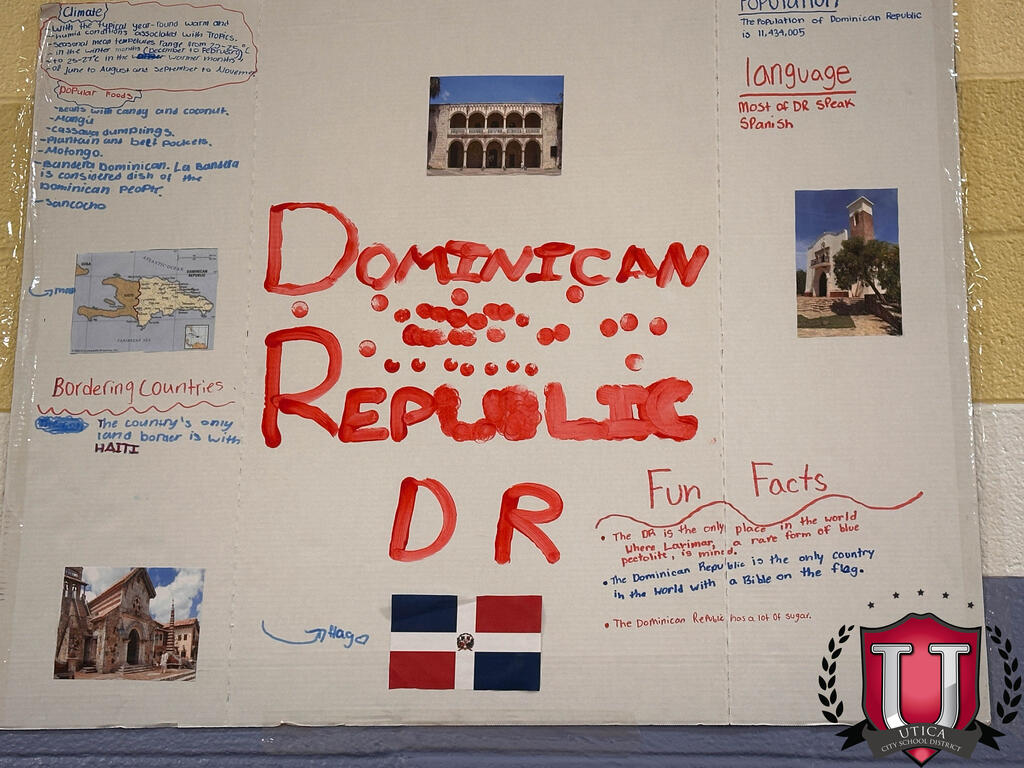 Climate
-With the typical year-round warm and
-humid conditions associated with Tropics.
-Seasonal mean tempetures range from
- in the winter months (December to February),
- to 25-27°C in the warmer months
-of June to August and September to November
Popular Foods
-Beans with candy and coconut.
-Mangú
-Cassava dumplings.
-Plantain and beef pockets.
-Mofongo.
-Bandera Dominican. La Bandera
is considered dish of the
Dominican People.
- Sancocho
map
ATLANTIC OCEAN
DOMINICAN
REPUBLIC
CARIBBEAN SEA
Bordering Countries.
The country's only
land border is with
HAITI
DOMINICAN
REPUBLIC
DR
flag
Population
The Population of Dominican Republic
is 11,434,005
language
Most of DR Speak
Spanish
Fun Facts
• The DR is the only place in the world
where Larimar, a rare form of blue
pectolite, is mined.
• The Dominican Republic is the only country
in the world with a Bible on the flag.
• The Dominican Republic has a lot of sugar.
U
UTICA
CITY SCHOOL DISTRICT